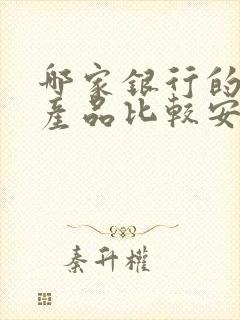 哪家銀行的
產品比較安
秦升權